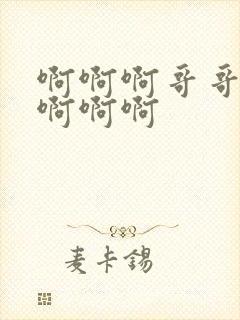 啊啊啊哥哥
啊啊啊
麦卡锡